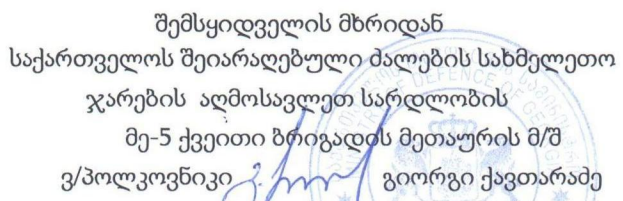 შემსყიდველის მხრიდან
საქართველოს შეიარაღებული ძალების სახმელეთო
ჯარების აღმოსავლეთ სარდლობის
მე-5 ქვეითი ბრიგადის მეთაურის მ/შ
ვ/პოლკოვნიკი გიორგი ქავთარაძე
DEFENCE OF GEORGIA